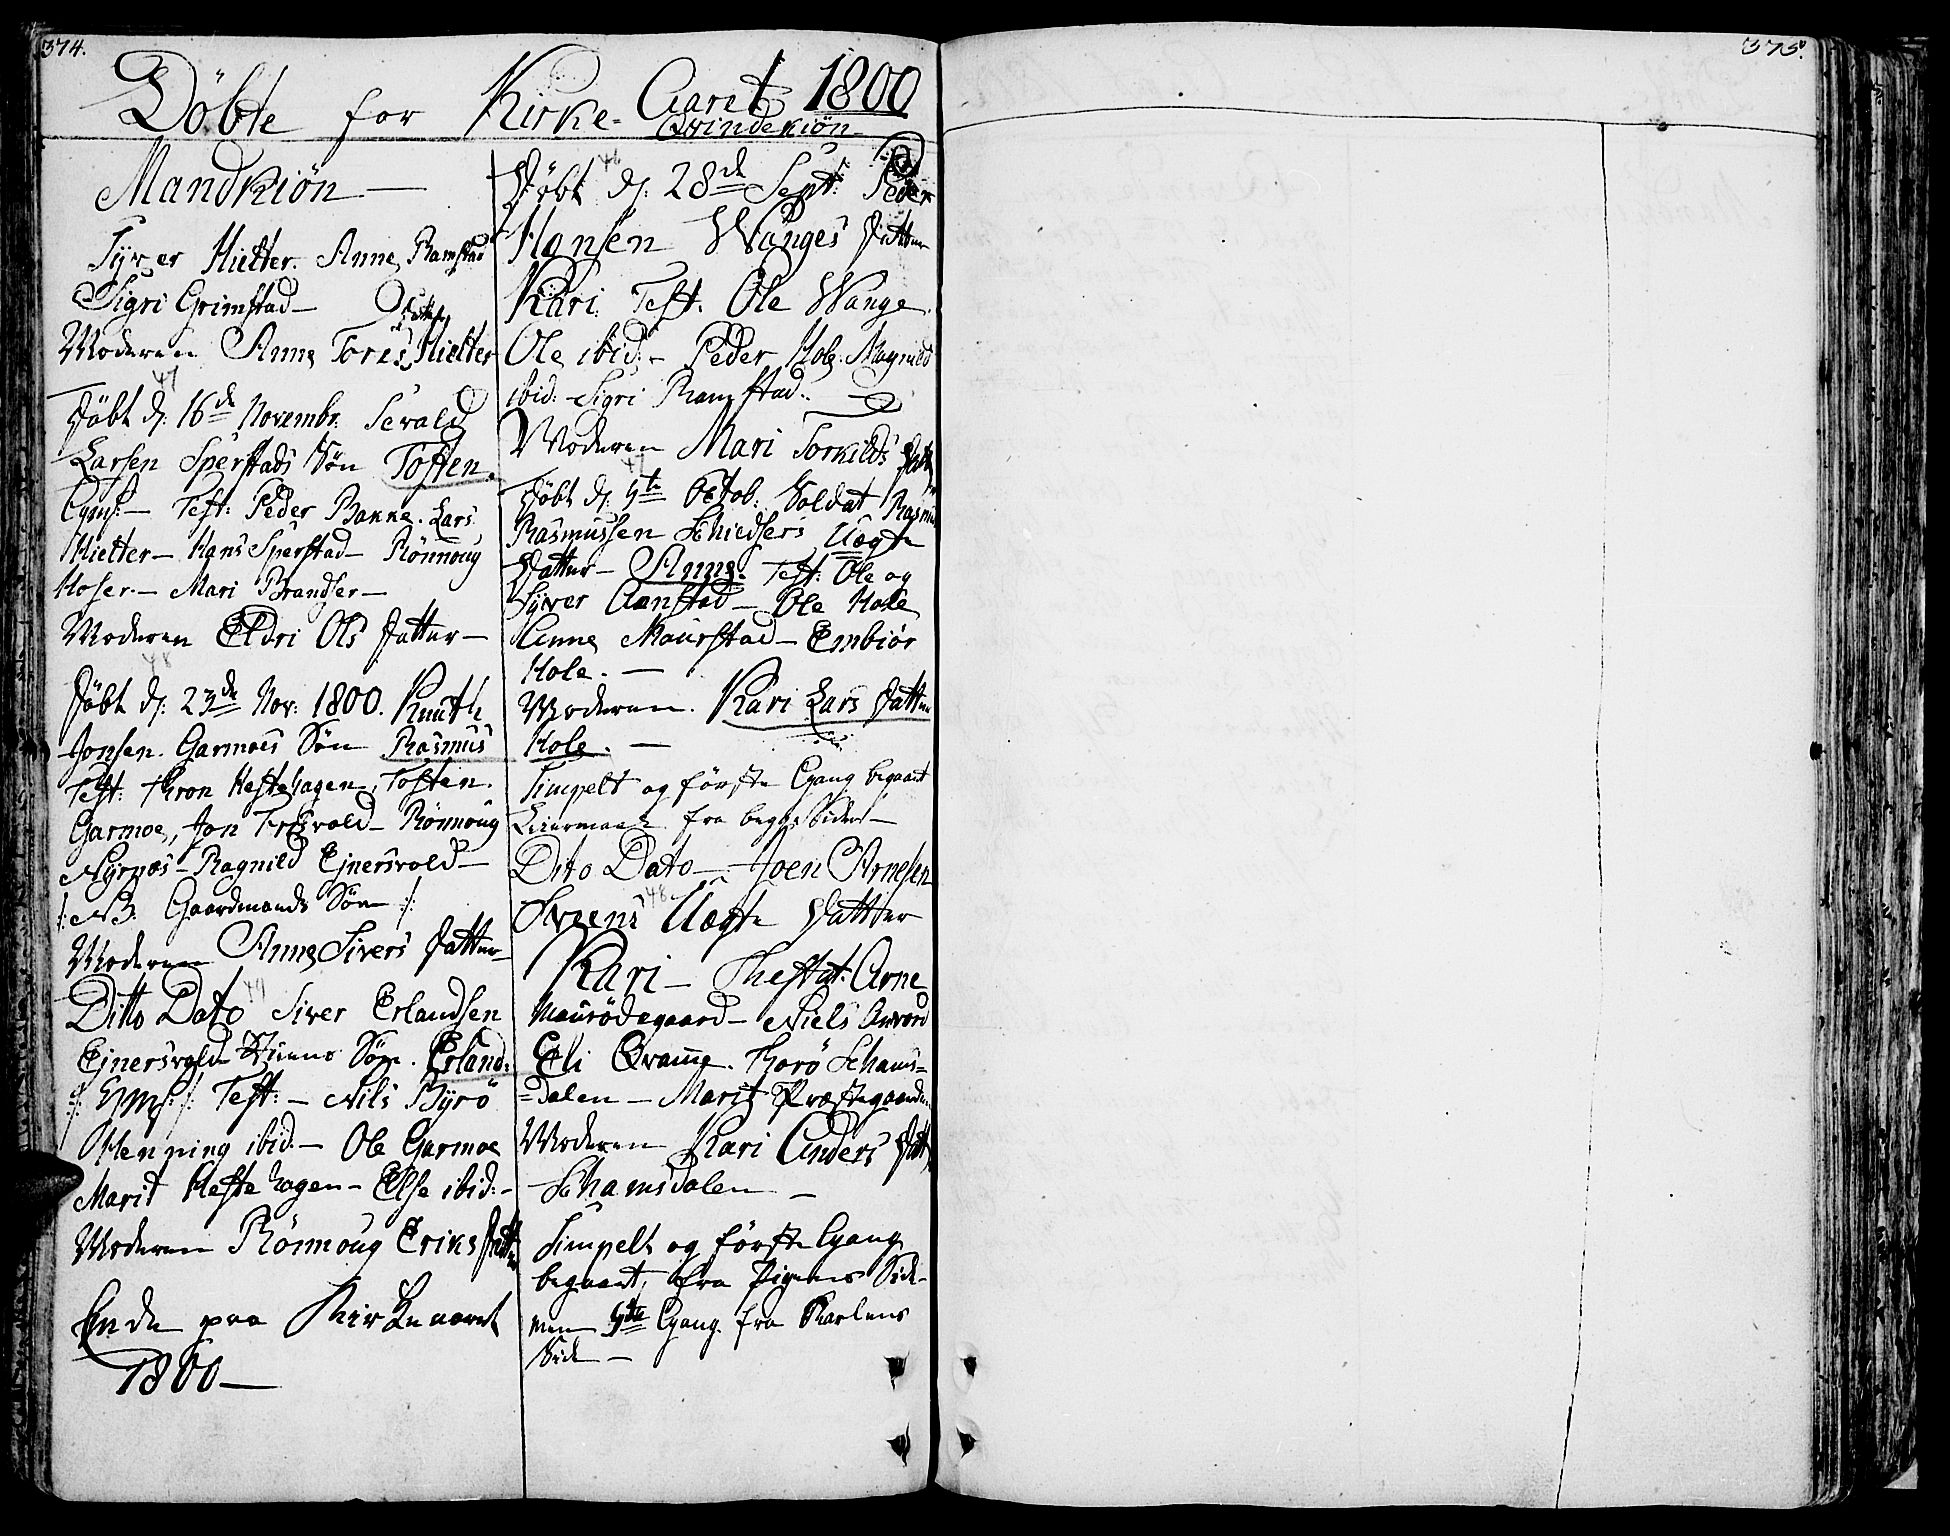 374.
Döbte for Kirke-Aaret 1800
Mandkiön —
Syver Hielter. Anne Ramstad
Sigri Grimstad —
Moderen Anne Tores Datter Hielter
47
Döbt d: 16de Novembr. Sevald
Larsen Sperstads Sön Tosten.
Test: Peder Bakke. Lars
Hielter — Hans Sperstad — Rönnoug
Hoser. — Mari Brandser —
Moderen Eldri Ols Datter —
48
Döbt d: 23de Nov: 1800. Knuth
Jonsen Garmoes Sön Rasmus
Test: Thron Hestehagen, Tosten
Garmoe, Jon — Rönnoug
Nyrnæs — Ragnild Ejnersvold —
/: NB: Gaardmands Sön :/
Moderen Anne Sivers Datter —
49
Ditto Dato Siver Erlandsen
Ejnersvold Sön. Erland:
Test: — Nils Byrö
Henning ibid: — Ole Garmoe
Marit Hestehagen — Else ibid: —
Moderen Rönnoug Eriks Datter
Ende paa Kirkeaaret
1800 —
Qvindekiön
46
Döbt d: 28de Sept: Peder
Hansen Wanges Datter
Kari. Test. Ole Wange.
Ole ibid: — Peder Hole. Magnild
ibid: — Sigri Ramstad.
Moderen Mari Torkilds Datter
47
Döbt d: 5te Octob: Soldat Rasmus
Rasmussen Schiedsers Uægte
Datter — Anne. Test: Ole og
Syver Aanstad — Ole Hole
Anne Maurstad — Embiör
Hole. —
Moderen. Kari Lars Datter
Hole. —
Simpelt og förste Gang begaaet
Leiermaal fra begge Sider —
Dito Dato — Joen Arnesen
48
Sveens Uægte Datter
Kari — Thestat: Arne
Maurödegaard — Niels
Eli Qvamme. Thorö Schams=
=dalen — Marit Præstegaarden
Moderen Kari Anders Datter
Schamsdalen —
Simpelt og förste Gang
begaaet, fra Pigens Side —
men 5te Gang fra Karlens
Side —
375.